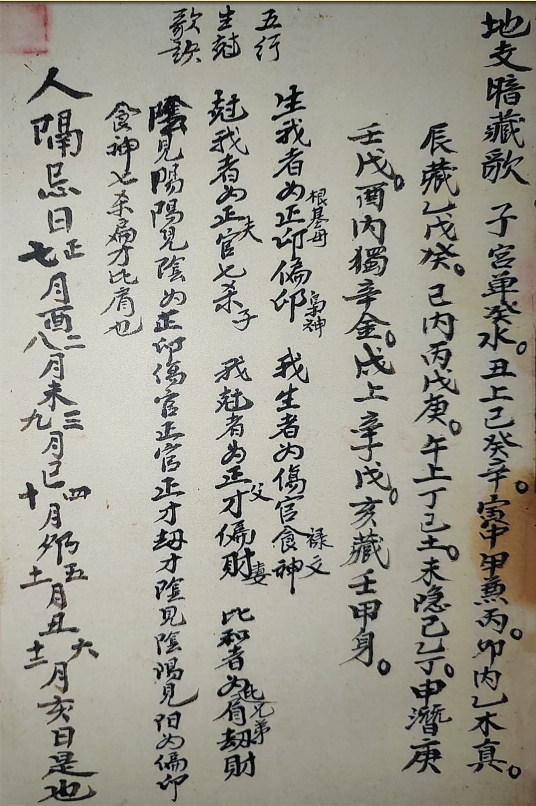 地支暗藏歌 子宫单癸水。丑上己癸辛。寅中甲兼丙。卯内乙木真。
辰藏乙戊癸。巳内丙戊庚。午上丁己土。未隐己乙丁。申潛庚
壬戊。酉内獨辛金。戌上辛丁戊。亥藏壬甲身。
五行
生尅
歌訣
生我者为正印偏印 我生者为傷官食神
根基母 枭神
尅我者为正官七杀 我尅者为正才偏財 比和者为肩劫財
夫 子 父 妻 比 兄弟
陰見陽陽見陰为正印傷官正官正才劫才陰見陰陽見阳为偏印
食神七杀扁才比肩也
人隔忌日 正七月酉 二八月未 三九月巳 四十月卯 五十一月丑 六十二月亥日是也